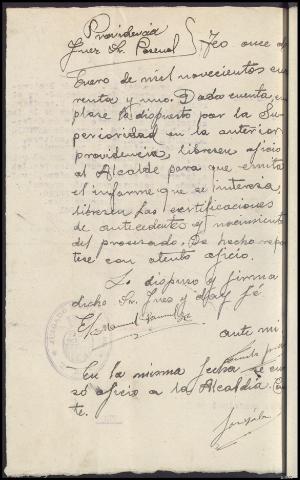 Providencia
Juez Sr. Pascual } Teo once de
Enero de mil novecientos cua
renta y uno. Dada cuenta, cum
plase lo dispuesto por la Su-
perioridad en la anterior
providencia, libresen oficio
al Alcalde para que emita
el informe que se interesa,
libresen las certificaciones
de antecedentes y nacimiento
del procesado. De hecho repor
tese con atento oficio.
Lo dispuso y firma
dicho Sr. Juez y doy fé
E/ Manuel Pascual
ante mi
En la misma fecha se cur
só oficio a la Alcaldia.
te.
JUZGADO